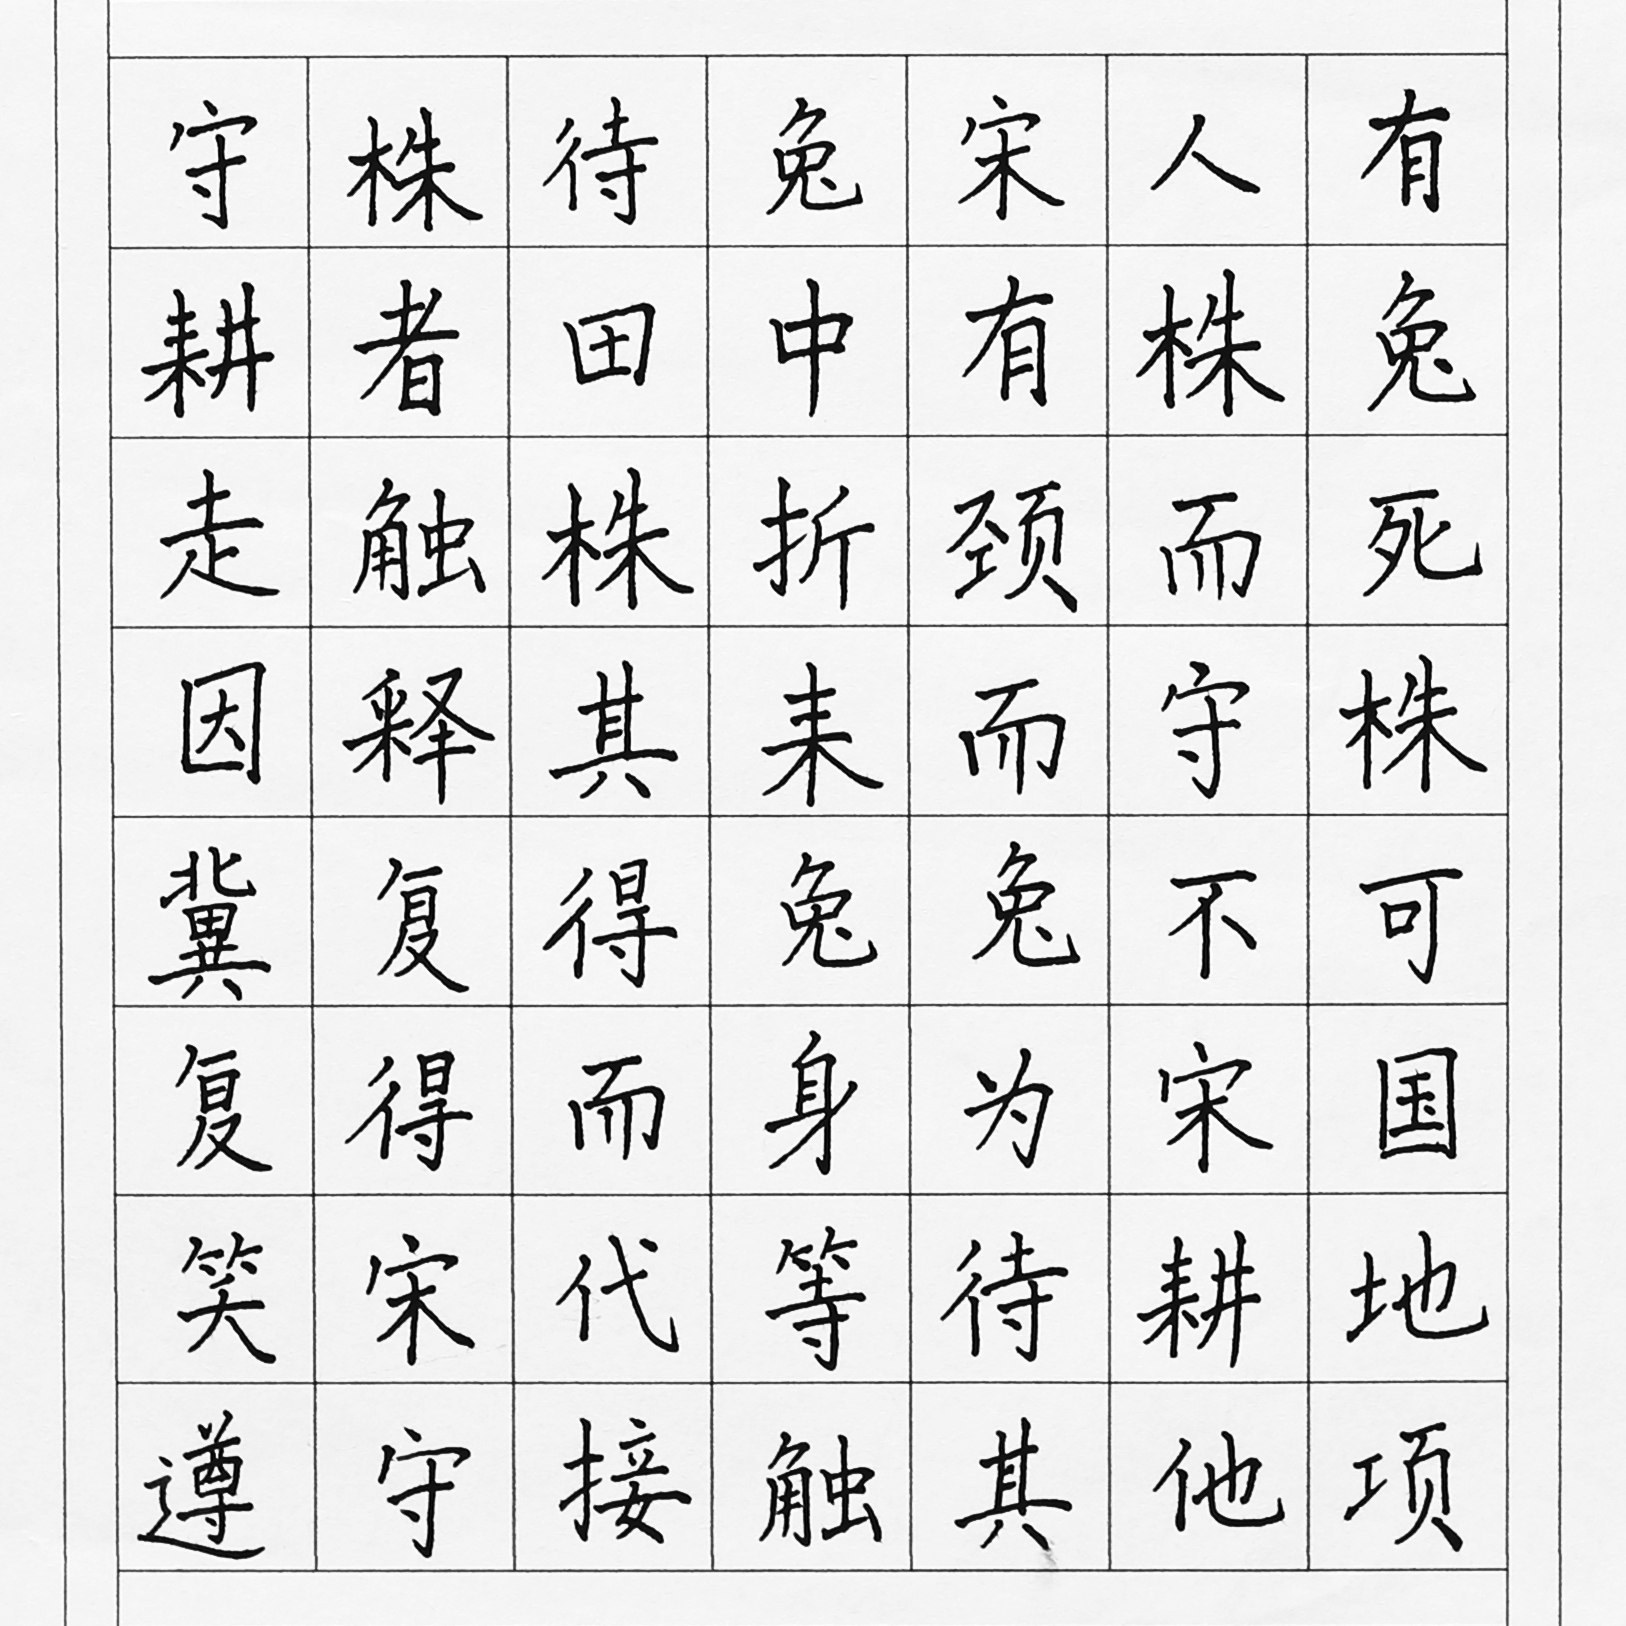 守株待兔宋人有
耕者田中有株兔
走触株折颈而死
因释其耒而守株
冀复得兔兔不可
复得而身为宋国
笑宋代等待耕地
遵守接触其他项